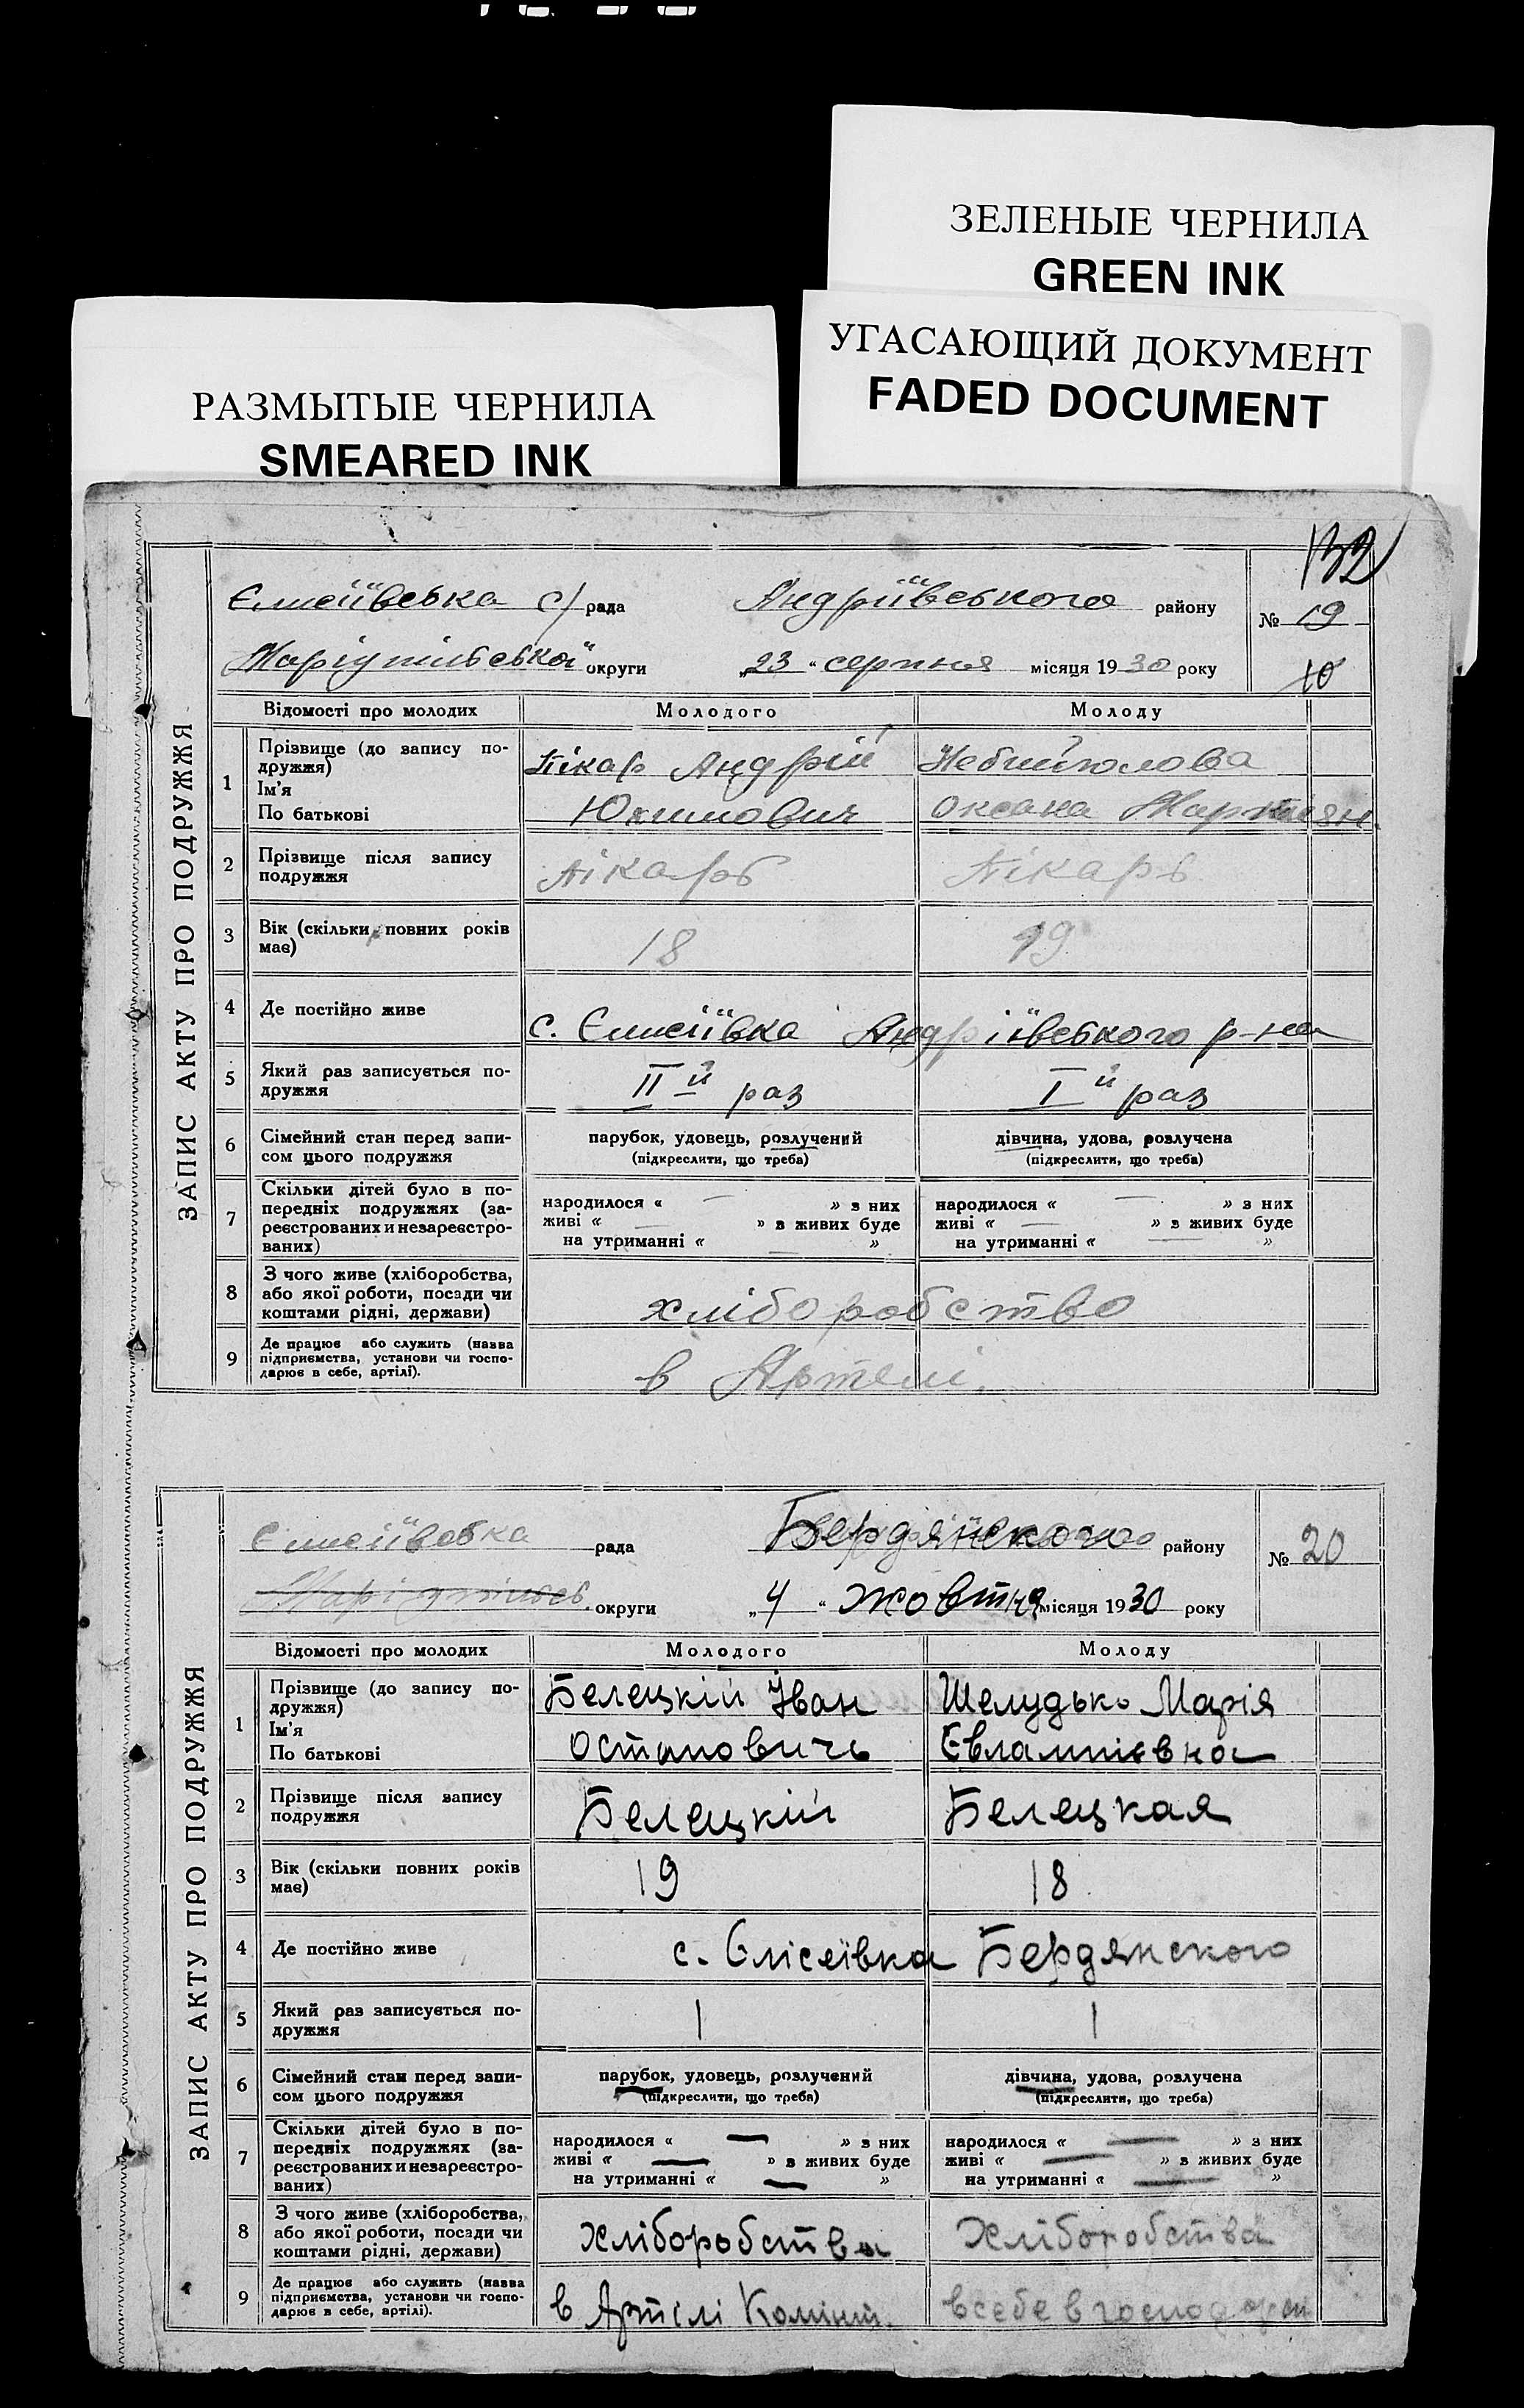 ЗЕЛЕНЫЕ ЧЕРНИЛА
GREEN INK
УГАСАЮЩИЙ ДОКУМЕНТ
FADED DOCUMENT
РАЗМЫТЫЕ ЧЕРНИЛА
SMEARED INK
132
ЗАПИС АКТУ ПРО ПОДРУЖЖЯ
Єлисеївська с/рада Андріївського району № 19
Маріупільської округи „23“ серпня місяця 1930 року 10
Відомості про молодих Молодого Молоду
1 Прізвище (до запису по-
дружжя)
Ім'я
По батькові
Пікар Андрій
Юхимович
Небийголова
Оксана
2 Прізвище після запису
подружжя
Пікарь Пікарь
3 Вік (скільки повних років
має)
18 19
4 Де постійно живе
с. Єлисеївка Андріївського р-на
5 Який раз записується по-
дружжя
II й раз I й раз
6 Сімейний стан перед запи-
сом цього подружжя
парубок, удовець, розлучений
(підкреслити, що треба)
дівчина, удова, розлучена
(підкреслити, що треба)
7 Скільки дітей було в по-
передніх подружжях (за-
реєстрованих и незареєстро-
ваних)
народилося « — » з них
живі « — » з живих буде
на утриманні « — »
народилося « — » з них
живі « — » з живих буде
на утриманні « — »
8 З чого живе (хліборобства,
або якої роботи, посади чи
коштами рідні, держави)
хліборобство
9 Де працює або служить (назва
підприємства, установи чи госпо-
дарює в себе, артілі).
в Артелі.
ЗАПИС АКТУ ПРО ПОДРУЖЖЯ
Єлисеївська рада Бердянского району № 20
Маріупільськ. округи „4“ жовтня місяця 1930 року
Відомості про молодих Молодого Молоду
1 Прізвище (до запису по-
дружжя)
Ім'я
По батькові
Белецкій Іван
Остаповичь
Шелудько Марія
Євлампієвна
2 Прізвище після запису
подружжя
Белецкій Белецкая
3 Вік (скільки повних років
має)
19 18
4 Де постійно живе
с. Єлісеівка Бердянского
5 Який раз записується по-
дружжя
1 1
6 Сімейний стан перед запи-
сом цього подружжя
парубок, удовець, розлучений
(підкреслити, що треба)
дівчина, удова, розлучена
(підкреслити, що треба)
7 Скільки дітей було в по-
передніх подружжях (за-
реєстрованих и незареєстро-
ваних)
народилося « — » з них
живі « — » з живих буде
на утриманні « — »
народилося « — » з них
живі « — » з живих буде
на утриманні « — »
8 З чого живе (хліборобства,
або якої роботи, посади чи
коштами рідні, держави)
Хліборобства Хліборобства
9 Де працює або служить (назва
підприємства, установи чи госпо-
дарює в себе, артілі).
в Артілі Комінт.
в себе в